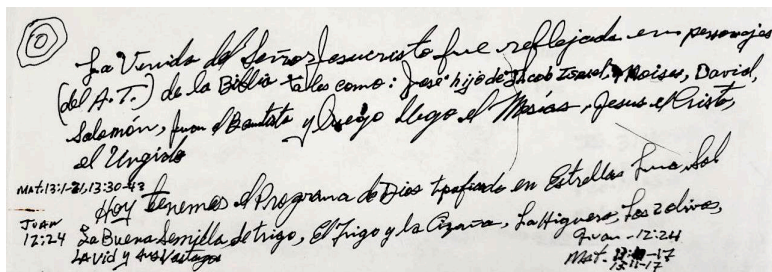 La Venida del Señor Jesucristo fue reflejada en personajes
(del A.T.) de la Biblia tales como: José hijo de Jacob Israel, Moises, David,
Salomón, Juan el Bautista y luego llego el Mesías, Jesus el Cristo,
el Ungido
Hoy tenemos el Programa de Dios tipificado en Estrellas Luna, Sol
Mat. 13:1-31, 13:30-43
La Buena Semilla de trigo, El Trigo y la Cizaña, La Higuera, Los 2 olivos,
Juan 12:24
La Vid y los Vastagos
Juan - 12:24
Mat.